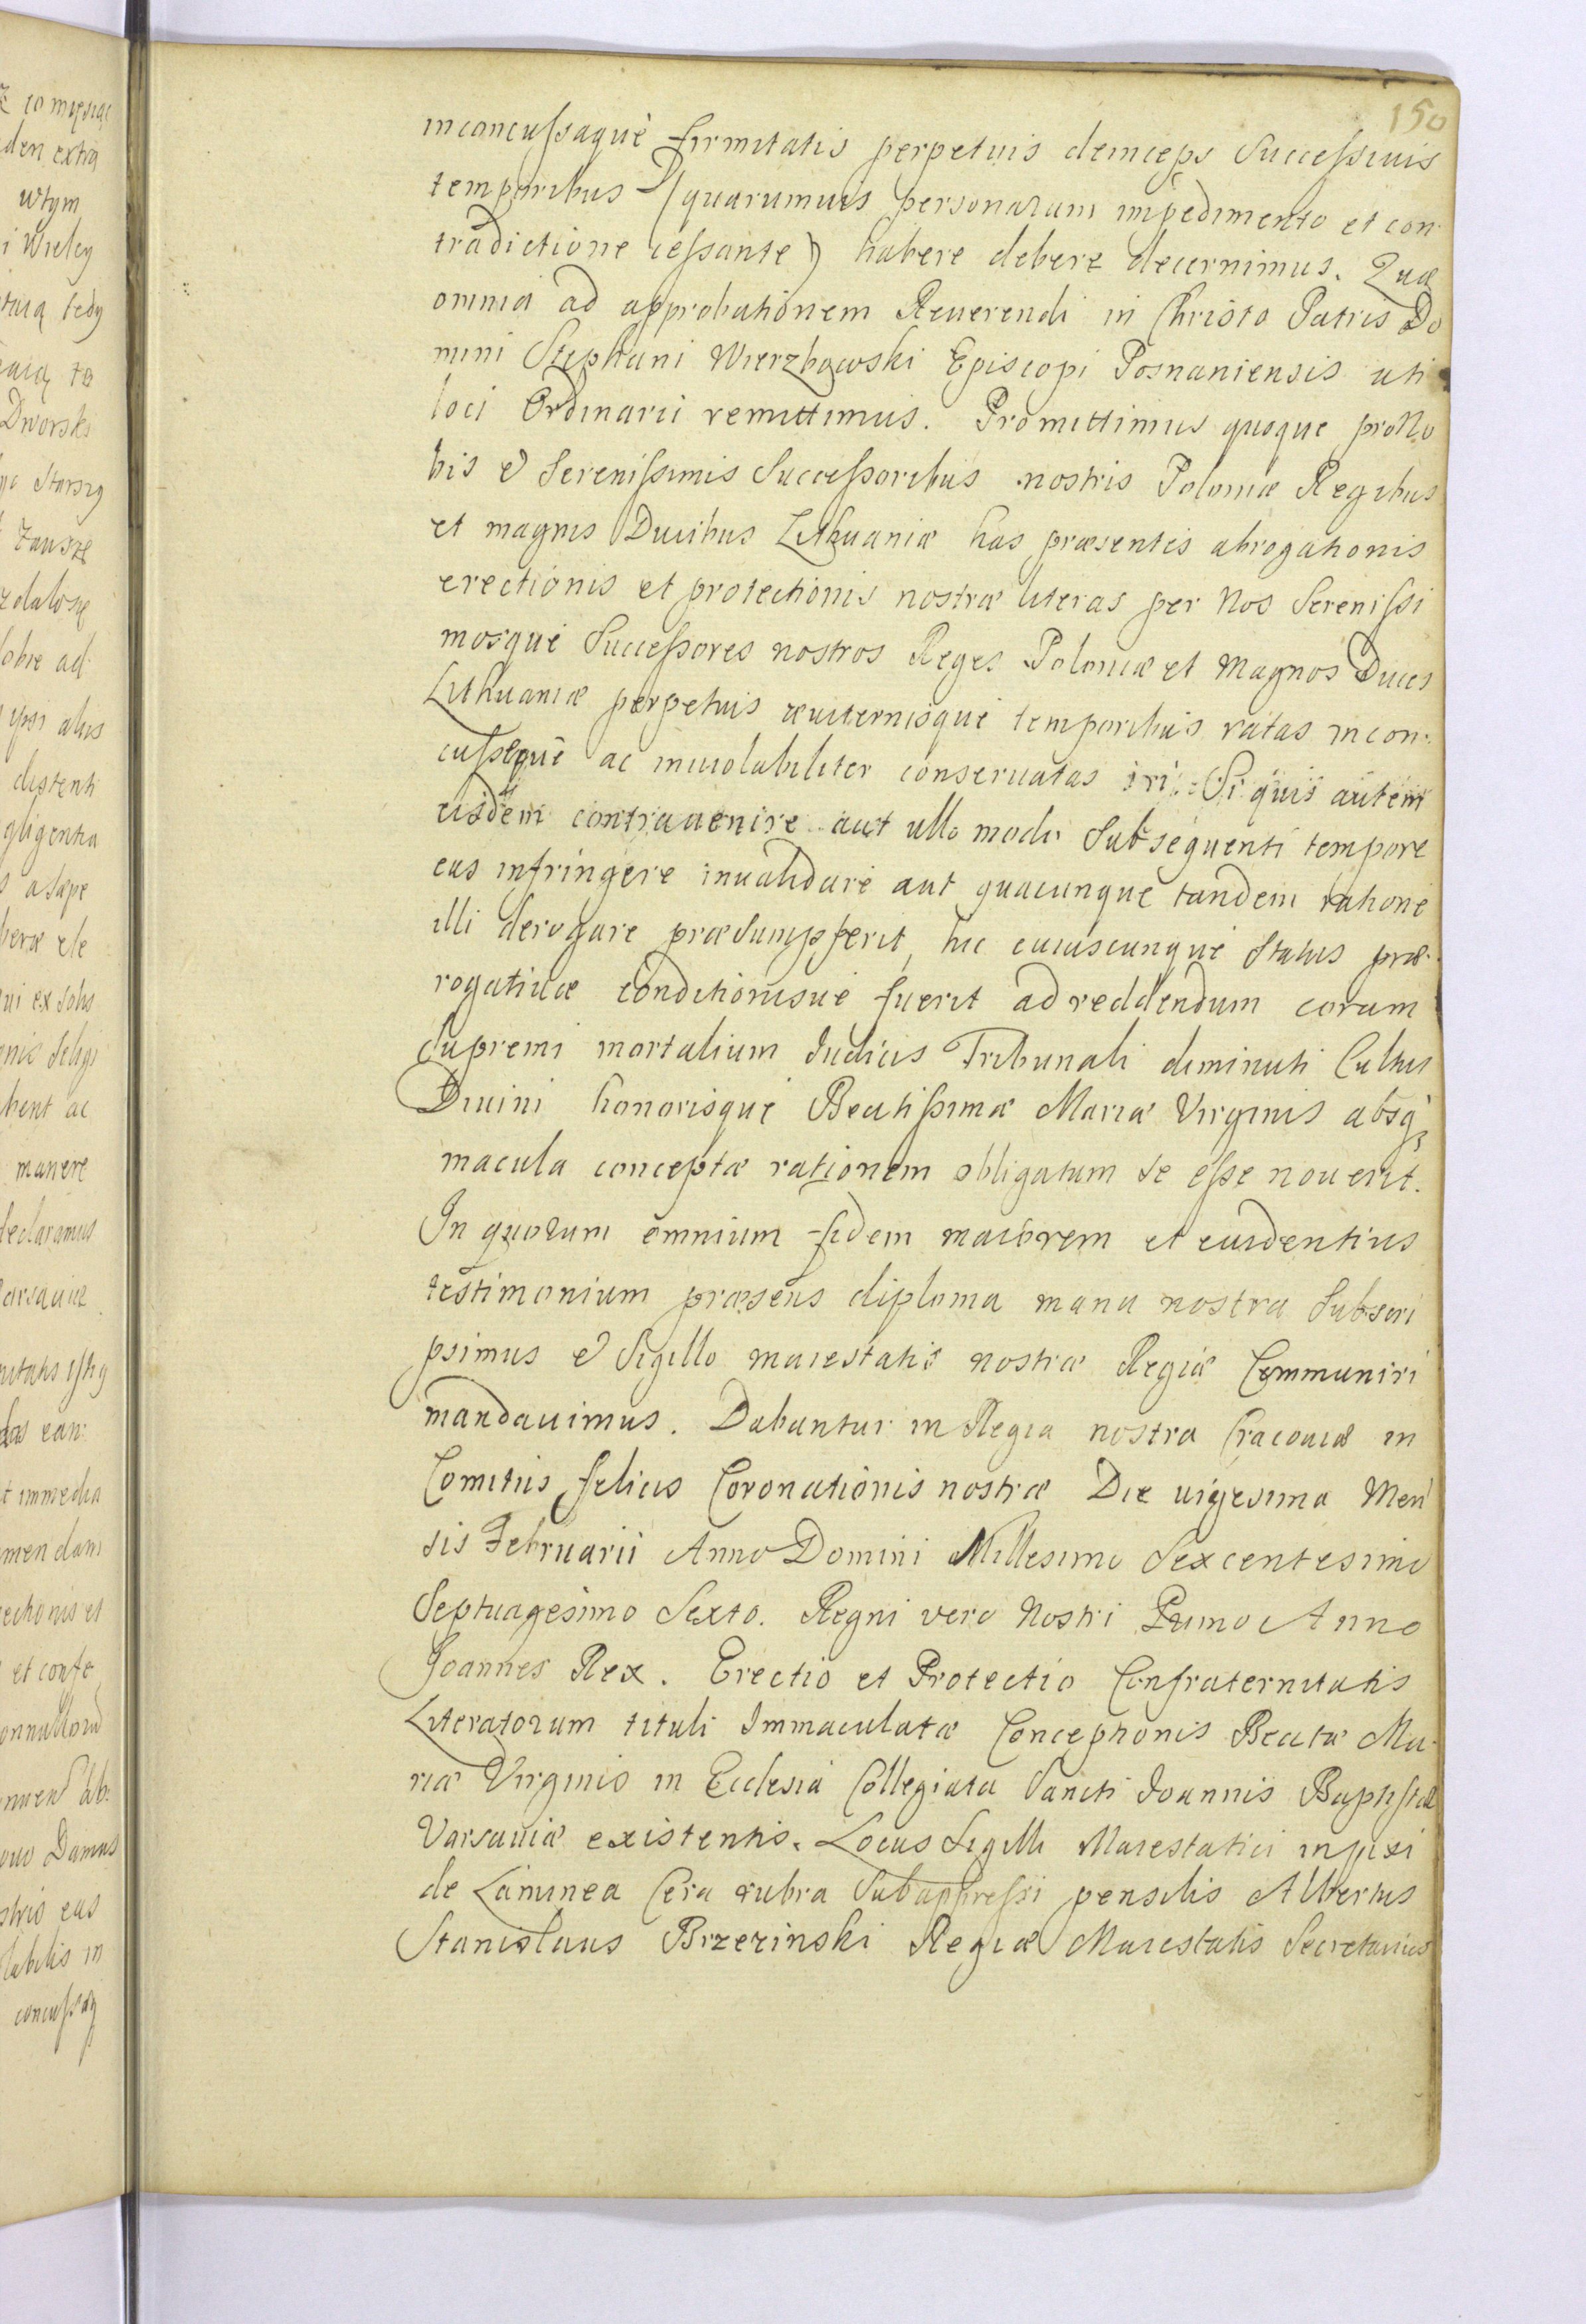 150
inconcussaquè firmitatis perpetuis deinceps Successivis
temporibus (quarumuis personarum impedimento et con-
tradictione cessante) habere debere decernimus. Quæ
omnia ad approbationem Reuerendi in Christo Patris Do
mini Stephani Wierzbowski Episcopi Posnaniensis uti
loci Ordinarii remittimus. Promittimus quoque pro No
bis & Serenissimis Successoribus nostris Poloniæ Regibus
et magnis Ducibus Lithuaniæ has præsentes abrogationis
erectionis et protectionis nostræ literas per Nos Serenissi
mosque Successores nostros Reges Poloniæ et Magnos Duces
Lithuaniæ perpetuis æuiternisque temporibus ratas incon-
cussequè ac inuiolabiliter conseruatas iri. Si quis autem
eisdem contrauenire aut ullo modo Subsequenti tempore
eas infringere inualidare aut quacunque tandem ratione
illi derogare præsumpserit, hic cuiuscunque Status præ-
rogatiuæ conditionisue fuerit ad reddendum coram
Supremi mortalium Iudicis Tribunali diminuti Cultus
Diuini honorisque Beatissimæ Mariæ Virginis absq;
macula conceptæ rationem obligatum se esse nouerit.
In quorum omnium fidem maiorem et euidentius
testimonium præsens diploma manu nostra Subscri
psimus & Sigillo maiestatis nostræ Regiæ Communiri
mandauimus. Dabantur in Regia nostra Cracouiæ in
Comitiis felicis Coronationis nostræ Die uigesima Men
sis Februarii Anno Domini Millesimo Sexcentesimo
Septuagesimo Sexto. Regni vero Nostri Primo Anno
Joannes Rex. Erectio et Protectio Confraternitatis
Literatorum tituli Immaculatæ Conceptionis Beatæ Ma-
riæ Virginis in Ecclesia Collegiata Sancti Joannis Baptistæ
Varsauiæ existentis. Locus Sigilli Maiestatici in pixi
de Laminea Cera rubra Subappressi pensilis Albertus
Stanislaus Brzezinski Regiæ Maiestatis Secretarius